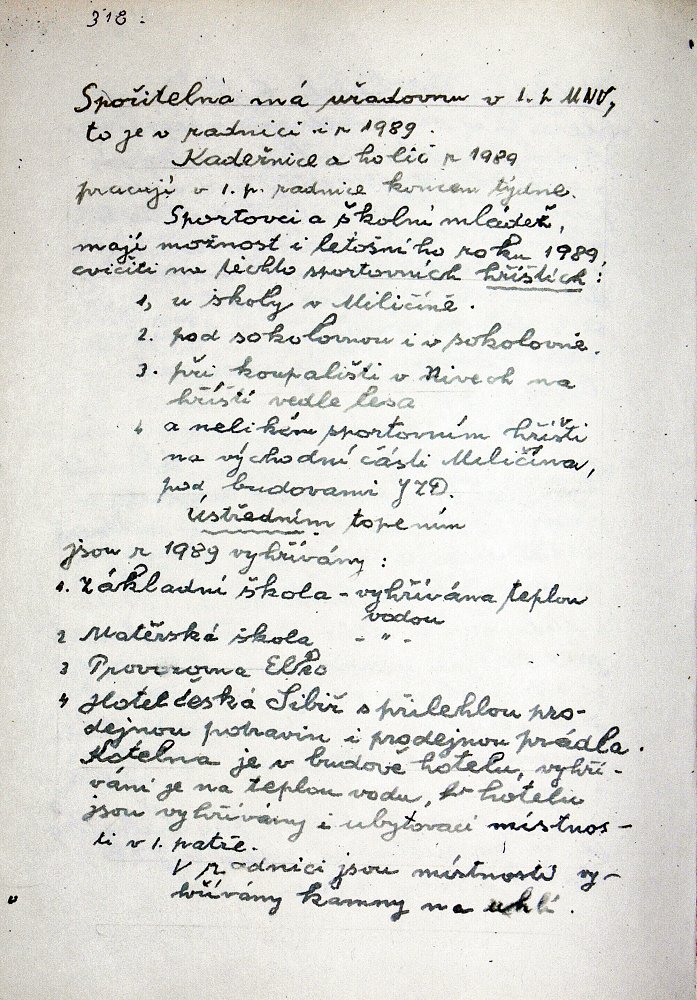 318.
Spořitelna má uřadovnu v 1. p MNV,
to je v radnici i r 1989.
Kadeřnice a holič r 1989
pracují v 1. p. radnice koncem týdne.
Sportovci a školní mládež,
mají možnost i letošního roku 1989,
cvičiti na těchto sportovních hřištích :
1, u školy v Miličíně.
2. pod sokolovnou i v sokolovně.
3. při koupališti v Nivech na
hřišti vedle lesa
4 a velikém sportovním hřišti
na východní části Miličína,
pod budovami JZD.
Ústředním topením
jsou r 1989 vyhřívány :
1. Základní škola - vyhřívána teplou
vodou
2 Matěřská škola - " -
3 Provozovna
4 Hotel česká Sibiř s přilehlou pro-
dejnou potravin i prodejnou prádla.
Kotelna je v budově hotelu, vyhří-
vání je na teplou vodu, hotelu
jsou vyhřívány i ubytovací místnos-
ti v 1. patře.
V radnici jsou místnosti vy-
hřívány kamny na uhlí.